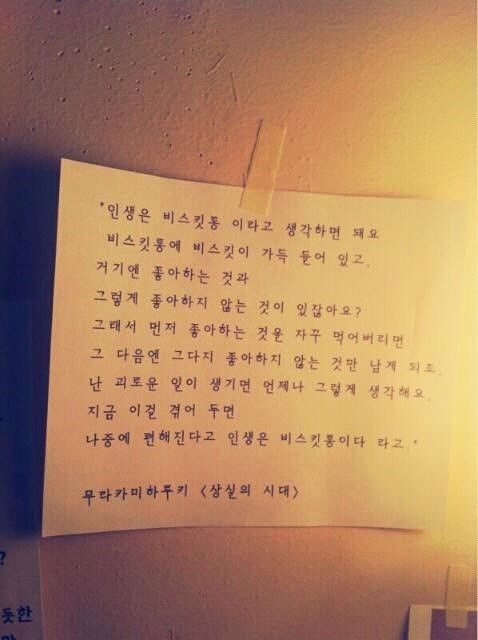 "인생은 비스킷통 이라고 생각하면 돼요
비스킷통에 비스킷이 가득 들어 있고,
거기엔 좋아하는 것과
그렇게 좋아하지 않는 것이 있잖아요?
그래서 먼저 좋아하는 것을 자꾸 먹어버리면
그 다음엔 그다지 좋아하지 않는 것만 남게 되죠.
난 괴로운 일이 생기면 언제나 그렇게 생각해요.
지금 이걸 겪어 두면
나중에 편해진다고 인생은 비스킷통이다 라고."
무라카미하루키 <상실의 시대>
?
듯한